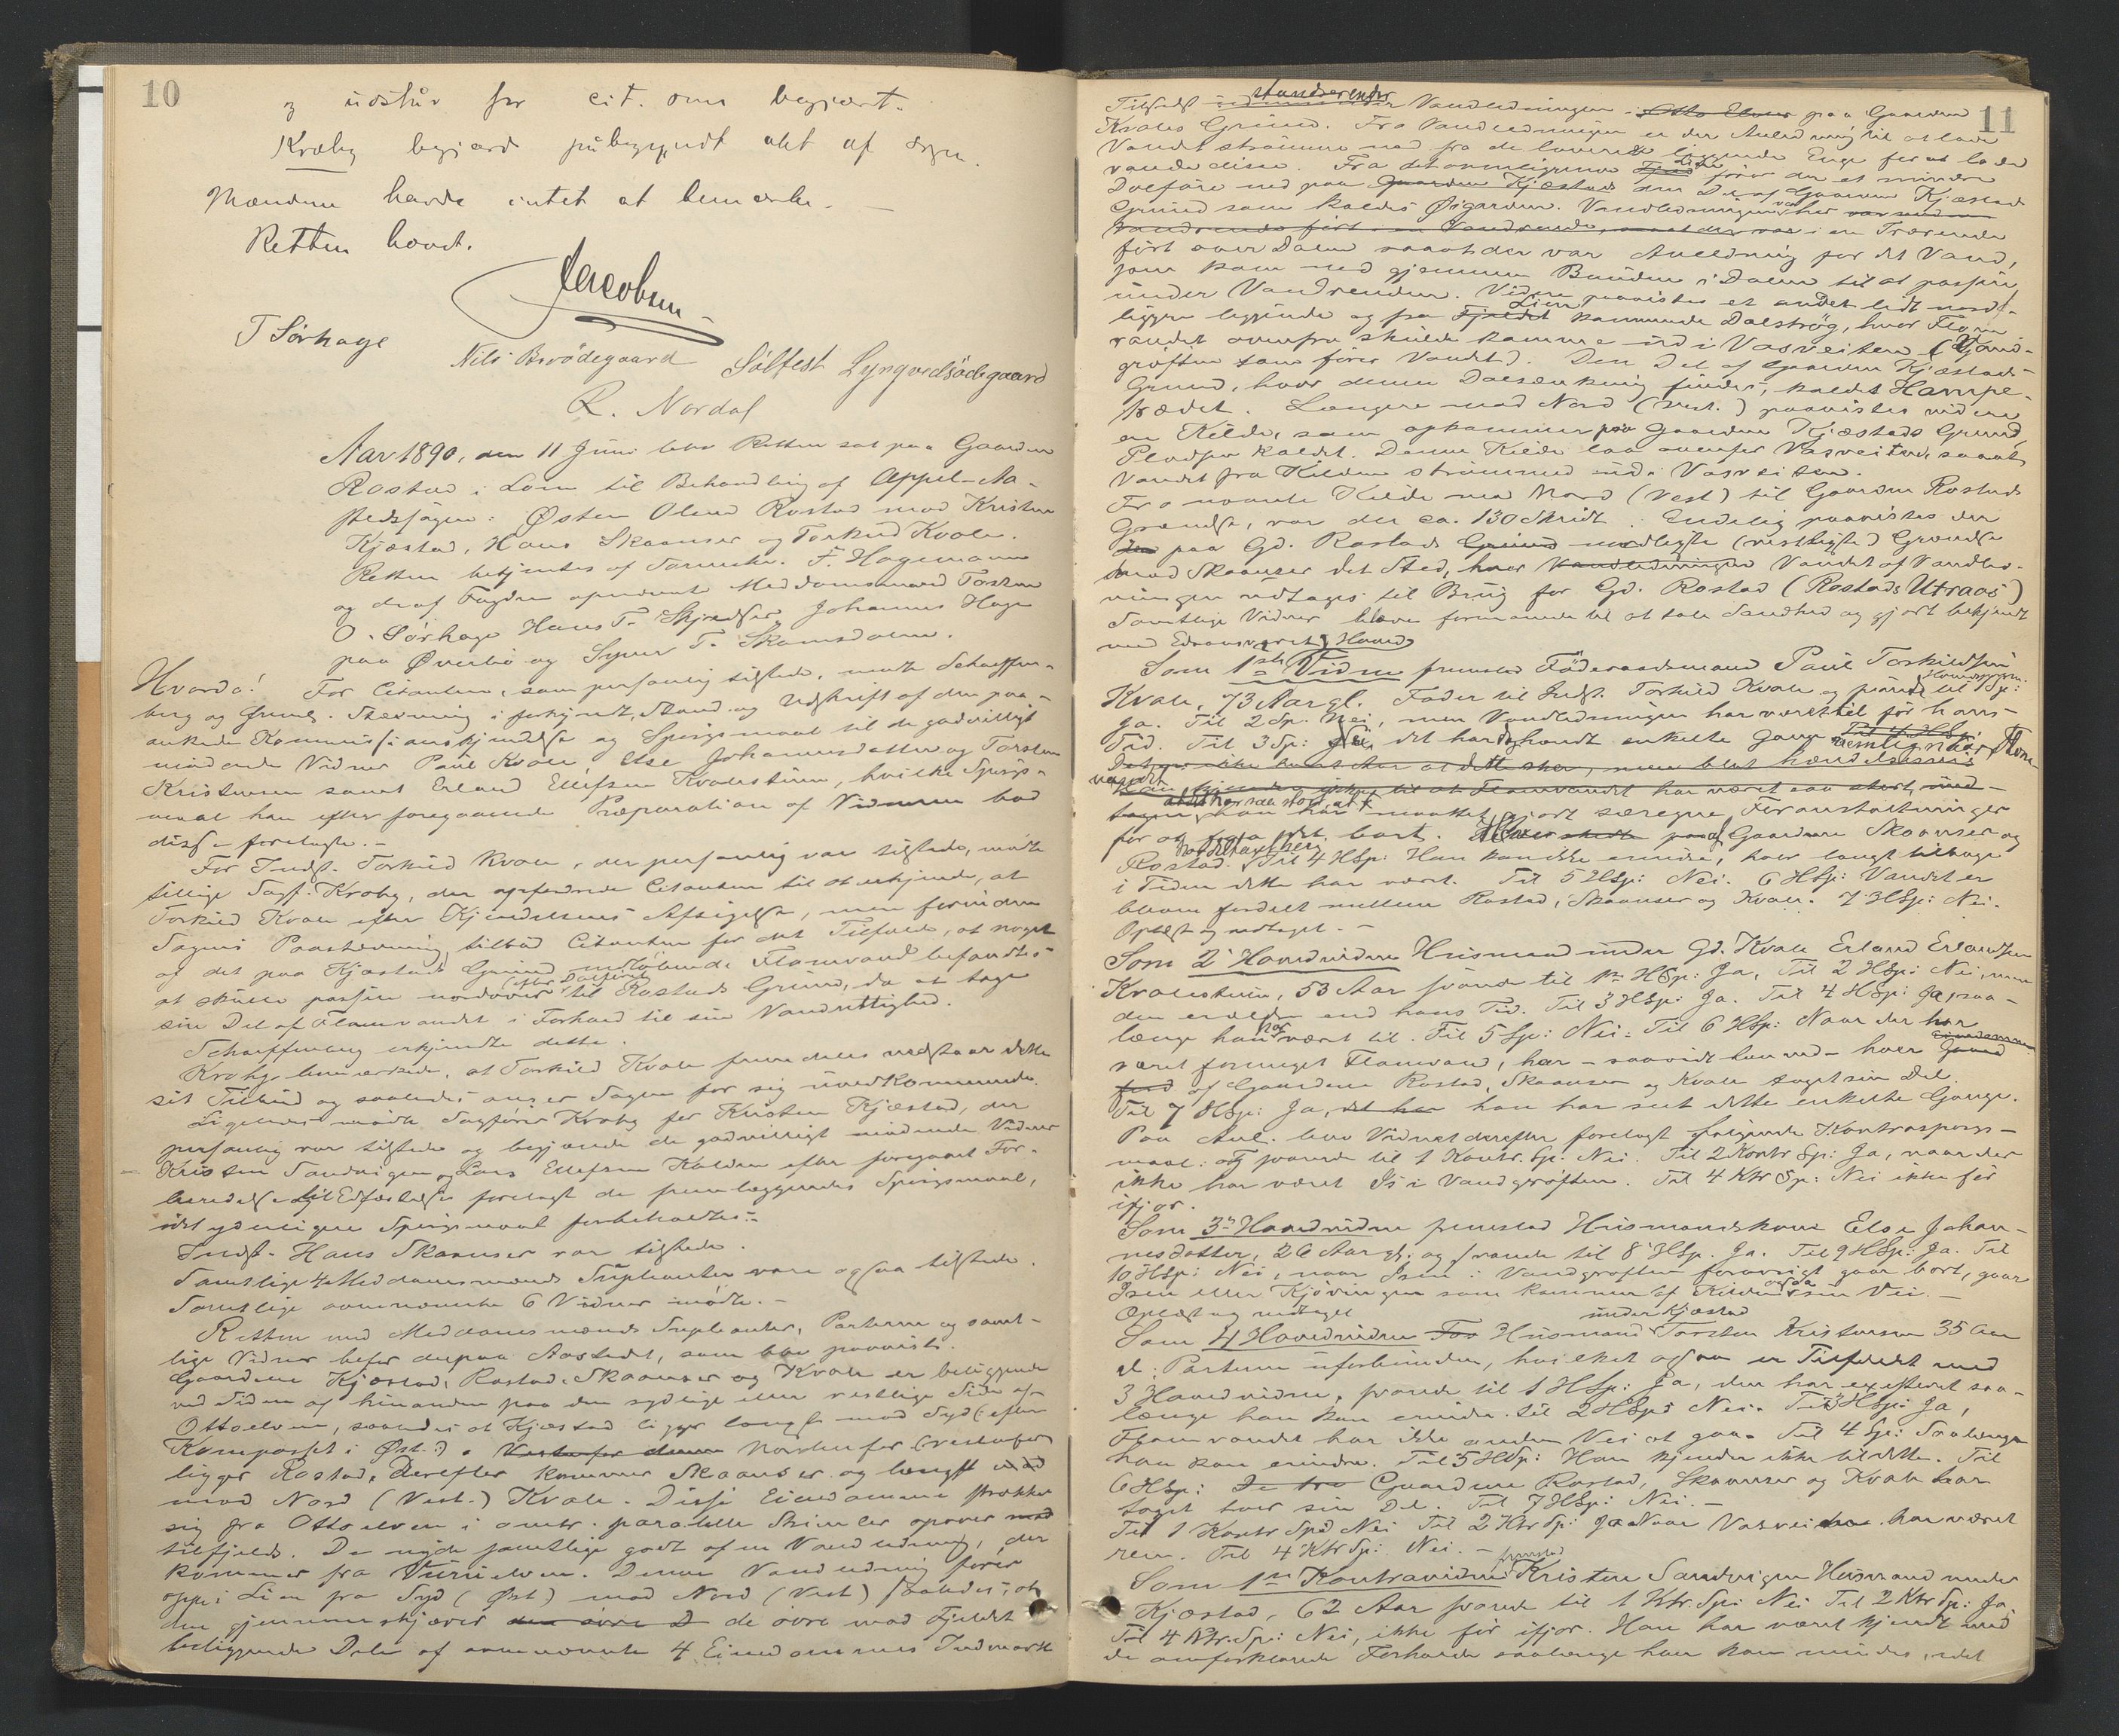 10
og udstår for cit. som begjært.
Kroby begjærd påbegyndt akt af
Mændene havde intet at bemærke. —
Retten hævet.
Jacobsen
T Sørhage
Nils Brvødegaard Sølfest Lyngvedsødegaard
R. Nordal
Aar 1890, den 11 Juni blev Retten sat paa Gaarden
Rostad i Lom til Behandling af Appel-Aa-
stedssagen: Østen Olsen Rostad mod Kristen
Kjæstad, Hans Skaanser og Torkild Kvale.
Retten betjentes af Sorenskr. F. Hagemann
og de af Fogden opnævnte Meddomsmænd Torsten
O. Sørhage Hans T. Johannes Hage
paa Øverbø og Syver T. Skamsdalen.
Hvorda! For Citanten, som personlig tilstede, mødte Schaffen-
berg og freml. Stævning i forkyndt Stand og Udskrift af den paa-
ankede Kommissionskjendelse og Spørgsmaal til de godvilligt
mødende Vidner Paul Kvale Else Johannesdatter og Torsten
Kristensen samt Erland Ellefsen Kvalestuen, hvilke Spørgs-
maal han efter foregaaende Præparation af Vidnerne bad
disse forelagte. —
For Indst. Torkild Kvale, der personlig var tilstede, mødte
tillige Sagf. Kroby, der opfordrede Citanten til at erkjende, at
Torkild Kvale efter Kjendelsens Afsigelse, men forinden
Sagens Paastevning tilbød Citanten for det Tilfælde, at noget
af det paa Kjæstads Grund nedløbende Flomvand befandtes
(efter Dalføret)
at skulle passere nordover til Rostads Grund, da at tage
sin Del af Flomvandet i Forhold til sin Vandrettighed.
Schaffenberg erkjendte dette.
Kroby bemærkede, at Torkild Kvale fremdeles vedstaar dette
sit Tilbud og saaledes anser Sagen for sig uvedkommende.
Ligeledes mødte Sagfører Kroby for Kristen Kjæstad, der
personlig var tilstede og begjærede de godvilligt mødende Vidner
Kristen Sandvigen og Lars Ellefsen Kolden efter foregaaet For-
beredelse til Edfæstelse forelagt de fremlæggendes Spørgsmaal,
idet yderligere Spørgsmaal forbeholdtes. —
Indst. Hans Skaanser var tilstede.
Samtlige 4 Meddomsmænds Supleanter vare ogsaa tilstede.
Samtlige ovennævnte 6 Vidner mødte. —
Retten med Meddomsmænds Supleanter, Parterne og samt-
lige Vidner befor derpaa Aastedet, som blev paavist.
Gaardene Kjæstad, Rostad, Skaanser og Kvale er beliggende
ved Siden af hinanden paa den sydlige eller vestlige Side af
Ottaelven, saaledes at Kjæstad ligger længst mod Syd (efter
Kompasset i Øst.) Vestenfor denne Nordenfor (vestenfor)
ligger Rostad, derefter kommer Skaanser og længst
mod Nord (Vest.) Kvale. Disse Eiendomme strækker
sig fra Ottaelven i omtr. paralelle Strimler opover mod
tilfjelds. De nyde samtlige godt af en Vandledning, der
kommer fra elven. Denne Vandledning fører
oppe i Lien fra Syd (Øst) mod Nord (Vest) saaledes, at
den gjennemskjærer den øvre D de øvre mod Fjeldet
beliggende Dele af ovennævnte 4 Eiendommes Indmark
11
Tilsteds Vandledningen Otta Elven paa Gaarden
Kvales Grund. Fra Vandledningen er der Anledning til at lade
Vandet strømme ned fra de lavere liggende Enge for at lade
vande disse. Fra det ovenliggende Lien fører der et mindre
Dalføre ned paa Gaarden Kjæstads den Del af Gaarden Kjæstads
Grund som kaldes Øigarden. Vandledningen var her
vandrende ført i en Vandrende, saaat der var i en Trærende
ført over Dalen saaat der var Anledning for det Vand,
som kom ned gjennem Bunden i Dalen til at passere
under Vandrenden. Videre paavistes et andet lidt nord-
ligere liggende og fra Fjeldet Lien kommende Dalstrøg, hvor Flom-
vandet ovenfra skulde komme ud i Vasveiten (Vand-
grøften som fører Vandet). Den Del af Gaarden Kjæstads
Grund, hvor denne Dalsænkning findes, kaldes Hampe-
trædet. Længere mod Nord (Vest.) paavistes videre
en Kilde, som opkommer paa Gaarden Kjæstads Grund,
Pladsen kaldet. Denne Kilde laa ovenfor Vasveiten, saaat
Vandet fra Kilden strømmed ud i Vasveiten.
Fra nævnte Kilde mod Nord (Vest) til Gaarden Rostads
Grændse, var der ca. 130 Skridt. Endelig paavistes der
paa Gd. Rostads Grund nordligste (vestligste) Grændse
mod Skaanser det Sted, hvor Vandledningen Vandet af Vandled-
ningen udtages til Brug for Gd. Rostad (Rostads Utraas)
Samtlige Vidner bleve formanede til at tale Sandhed og gjort bekjendt
med Edsansvaret
Som 1ste Vidne fremstod Føderaadsmand Paul Torkildsen
Kvale, 73 Aar gl. Fader til Indst. Torkild Kvale og svarede til 1 Sp:
Ja. Til 2 Sp. Nei, men Vandledningen har været til før hans
Tid. Til 3 Sp: Ja, det har hændt enkelte Gange nemlig naar Flom-
vandet
for at faa det bort. Gaardene Skaanser og
Rostad. Til 4 HSp: Han kan ikke erindre, hvor langt tilbage
i Tiden dette har været. Til 5 HSp: Nei. 6 HSp: Vandet er
bleven fordelt mellem Rostad, Skaanser og Kvale. 7 HSp: Nei.
Oplæst og vedtaget. —
Som 2' Hovedvidne Husmand under Gd. Kvale Erland Erlandsen
Kvalestuen, 53 Aar svarede til 1ste HSp: Ja, Til 2 HSp: Nei, men
den er ældre end hans Tid. Til 3 HSp: Ja. Til 4 HSp: Ja, saa-
længe han har været til. Til 5 Sp: Nei. Til 6 HSp: Naar der har
været formeget Flomvand, har — saavidt han ved — hver
af Gaardene Rostad, Skaanser og Kvale taget sin Del.
Til 7 HSp: Ja, det har han har seet dette enkelte Gange.
Paa Anl. blev Vidnet derefter forelagt følgende Kontraspørgs-
maal: og svarede til 1 Kontr. Sp. Nei. Til 2 Kontr Sp: Ja, naar der
ikke har været Is i Vandgrøften. Til 4 Ktr Sp: Nei ikke før
ifjor.
Som 3' Hovedvidne fremstod Husmandskone Else Johan-
nesdatter, 26 Aar gl. og svarede til 8' HSp. Ja. Til 9 HSp: Ja. Til
10 HSp: Nei, naar Isen i Vandgrøften forøvrigt gaar bort, gaar
Isen eller Kjøvingen som kommer af Kilden ogsaa sin Vei. —
Oplæst og vedtaget
Som 4 Hovedvidne Husmand under Kjæstad Torsten Kristensen 35 Aar
gl. Parterne uforbunden, hvilket ogsaa er Tilfældet med
3 Hovedvidne, svarede til 1 HSp: Ja, den har existeret saa-
længe han kan erindre. Til 2 HSp: Nei. Til 3 HSp: Ja,
Flomvandet har ikke anden Vei at gaa. Til 4 Sp: Saalænge
han kan erindre. Til 5 HSp: Han kjender ikke til dette. Til
6 HSp: De tre Gaardene Rostad, Skaanser og Kvale har
taget hver sin Del. Til 7 HSp: Nei. —
Til 1 Kontr Sp: Nei Til 2 Ktr Sp: Ja Naar Vasveiten har været
ren. Til 4 Ktr Sp: Nei. —
Som 1ste Kontravidne fremstod Kristen Sandvigen Husmand under
Kjæstad, 62 Aar svarede til 1 Ktr. Sp: Nei Til 2 Ktr Sp: Ja.
Til 4 Ktr. Sp: Nei, ikke før ifjor. Han har været kjendt med
de omforklarede Forholde saalænge han kan mindes, idet